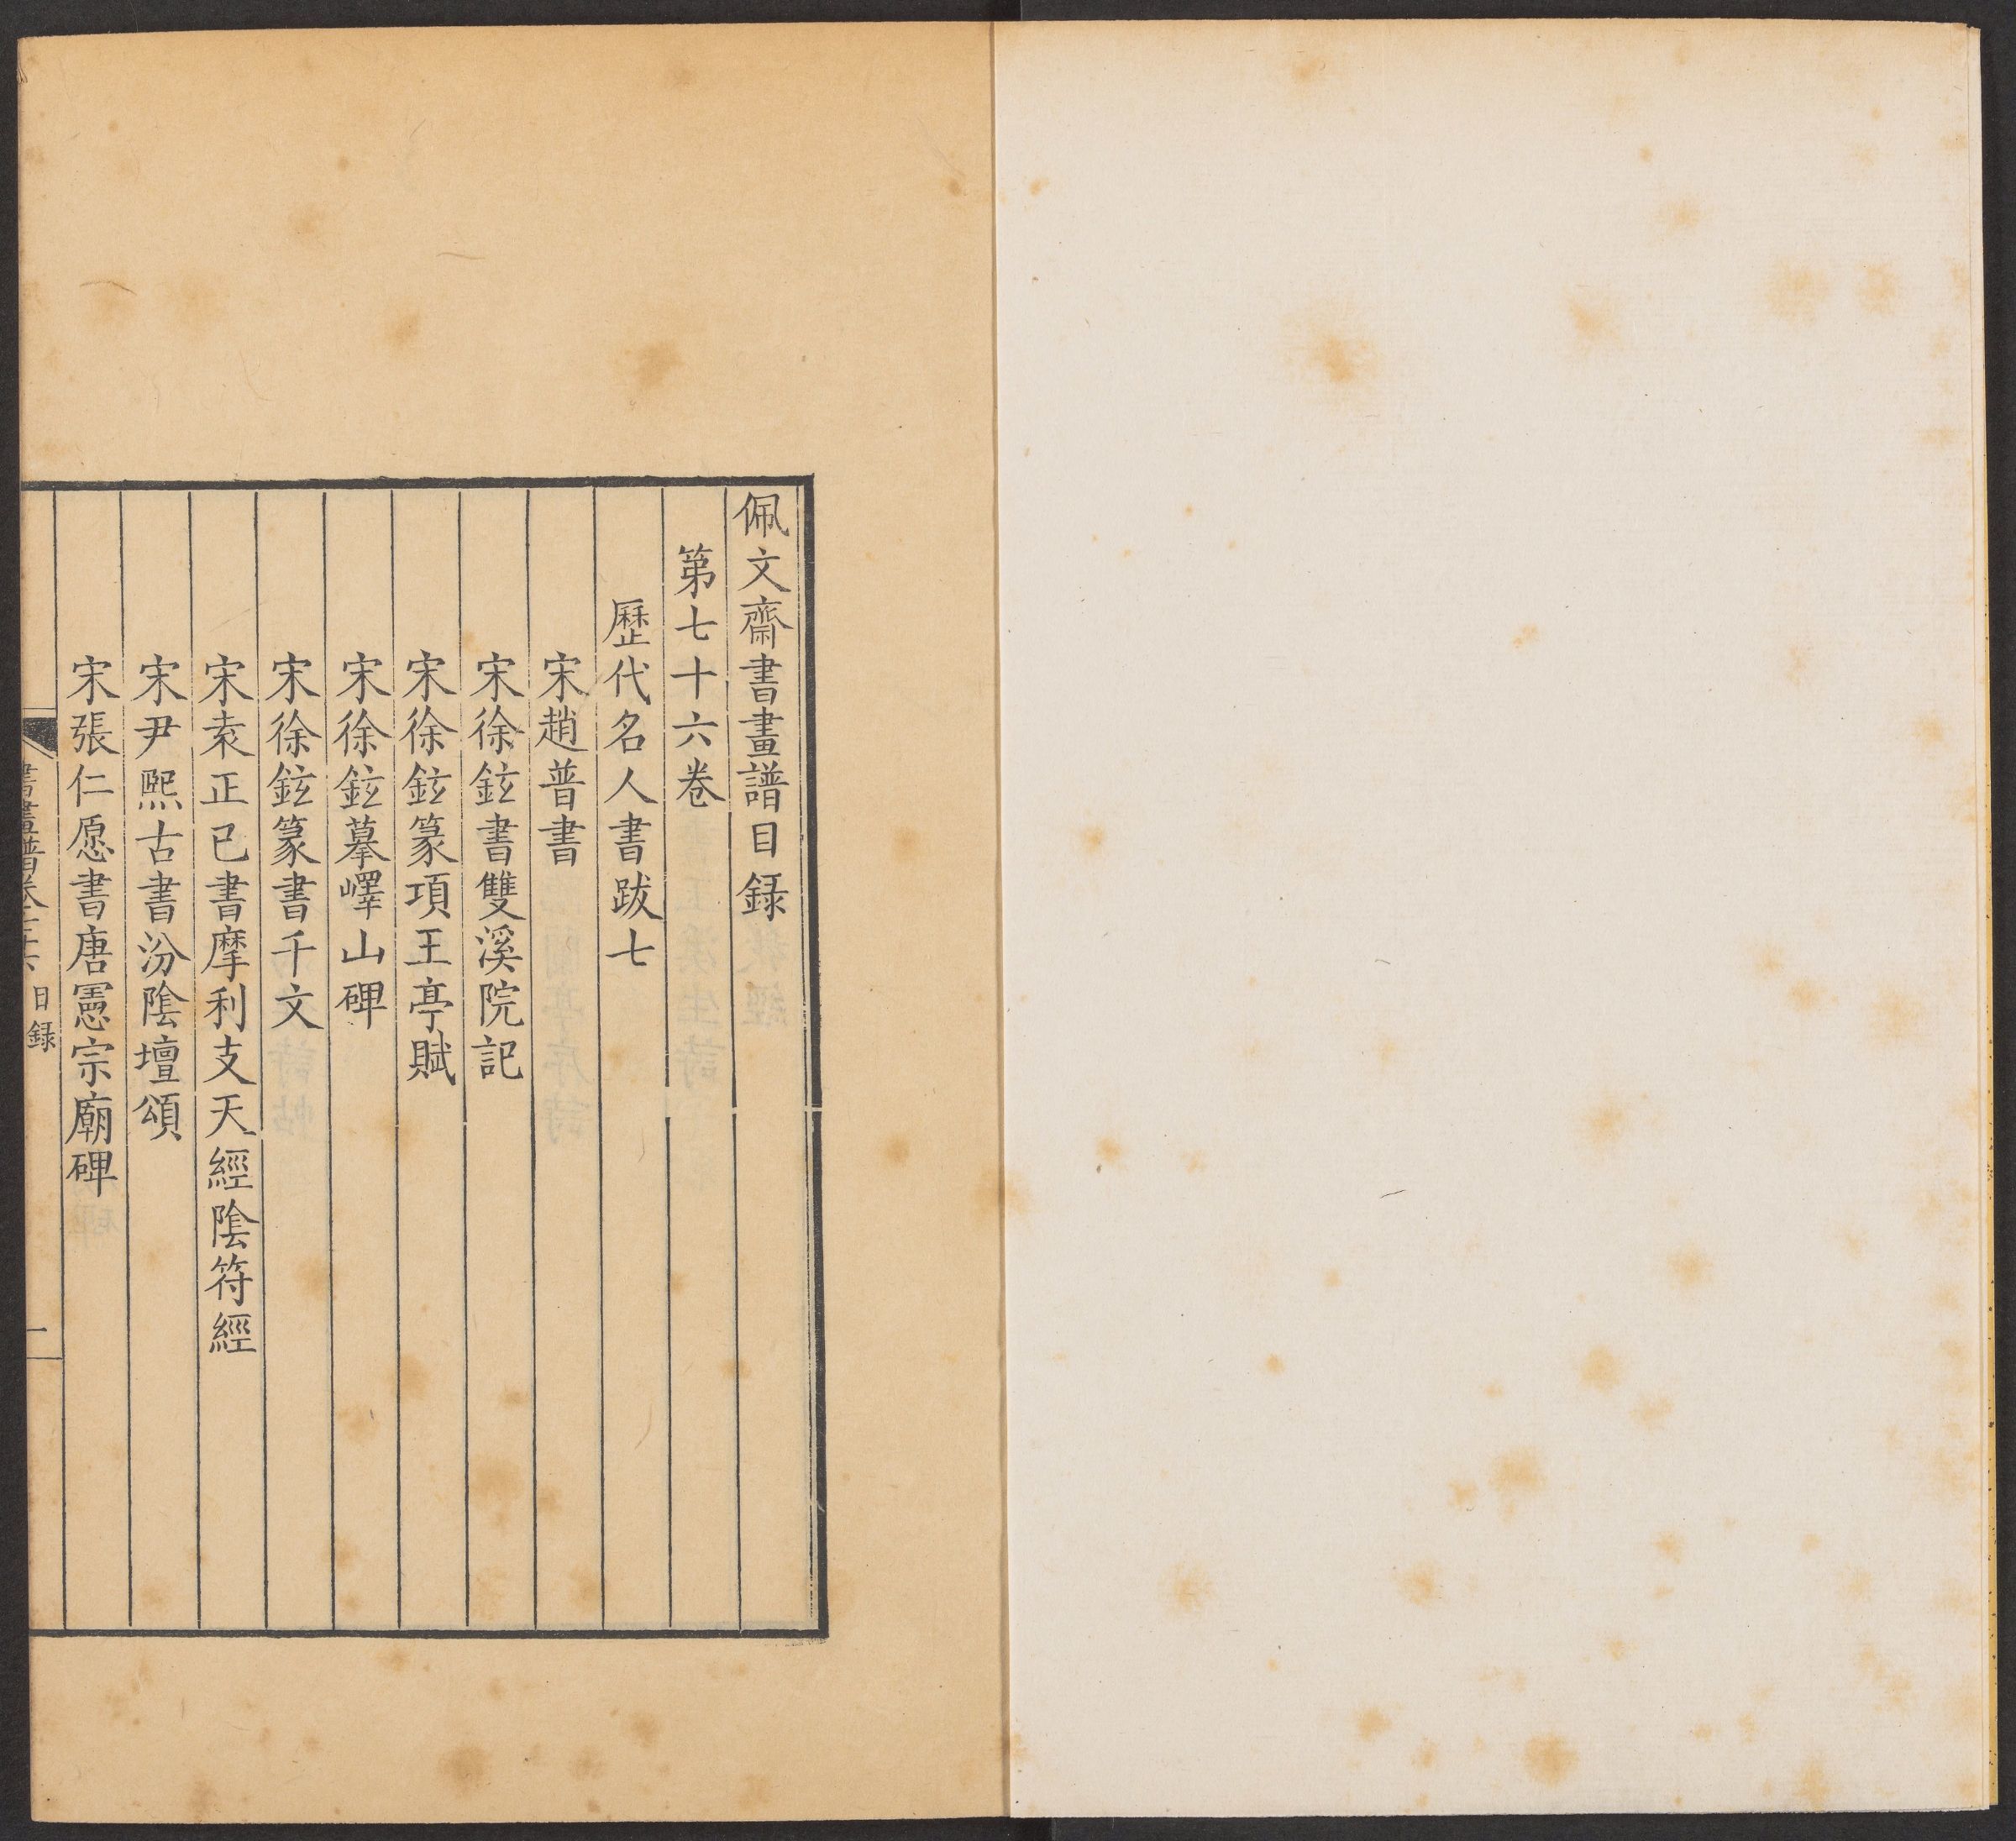 佩文齋書畫譜目錄
第七十六卷
歷代名人書跋七
宋趙普書
宋徐鉉書雙溪院記
宋徐鉉篆項王亭賦
宋徐鉉摹嶧山碑
宋徐鉉篆書千文
宋袁正已書摩利支天經陰符經
宋尹熙古書汾陰壇頌
宋張仁愿書唐憲宗廟碑
書畫譜卷七十六 目錄 一